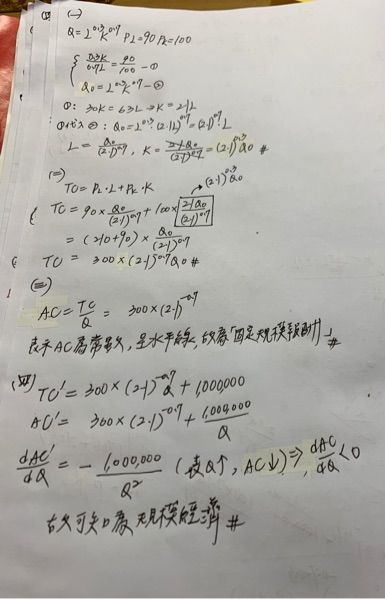 (一)
Q = L^0.3 K^0.7 PL=90 PK=100
{ 0.3K/0.7L = 90/100 —①
Q0 = L^0.3 K^0.7 —②
①: 30K = 63L ⇒ K = 2.1L
①代入②: Q0 = L^0.3 · (2.1L)^0.7 = (2.1)^0.7 · L
L = Q0/(2.1)^0.7 , K = 2.1Q0/(2.1)^0.7 = (2.1)^0.3 Q0 #
(二)
TC = PL·L + PK·K
(2.1)^0.3 Q0
TC = 90 × Q0/(2.1)^0.7 + 100 × 2.1Q0/(2.1)^0.7
= (210+90) × Q0/(2.1)^0.7
TC = 300 × (2.1)^-0.7 Q0 #
(三)
AC = TC/Q = 300 × (2.1)^-0.7
表示AC為常數, 呈水平線, 故為「固定規模報酬」#
(四)
TC' = 300 × (2.1)^-0.7 Q + 1,000,000
AC' = 300 × (2.1)^-0.7 + 1,000,000/Q
dAC'/dQ = - 1,000,000/Q² (表Q↑, AC↓) ⇒ dAC/dQ < 0
故可知為規模經濟 #